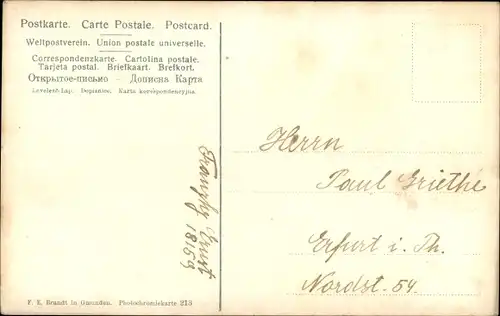 Postkarte. Carte Postale. Postcard.
Weltpostverein. Union postale universelle.
Correspondenzkarte. Cartolina postale.
Tarjeta postal. Briefkaart. Brefkort.
Открытое-письмо – Дописна Карта
Levelező-Lap. Dopisnice. Karta korespondenzyjna.
Herrn
Paul Griethe
Erfurt i. Th.
Nordst. 54.
Ernst
F. E. Brandt in Gmunden. Photochromiekarte 213